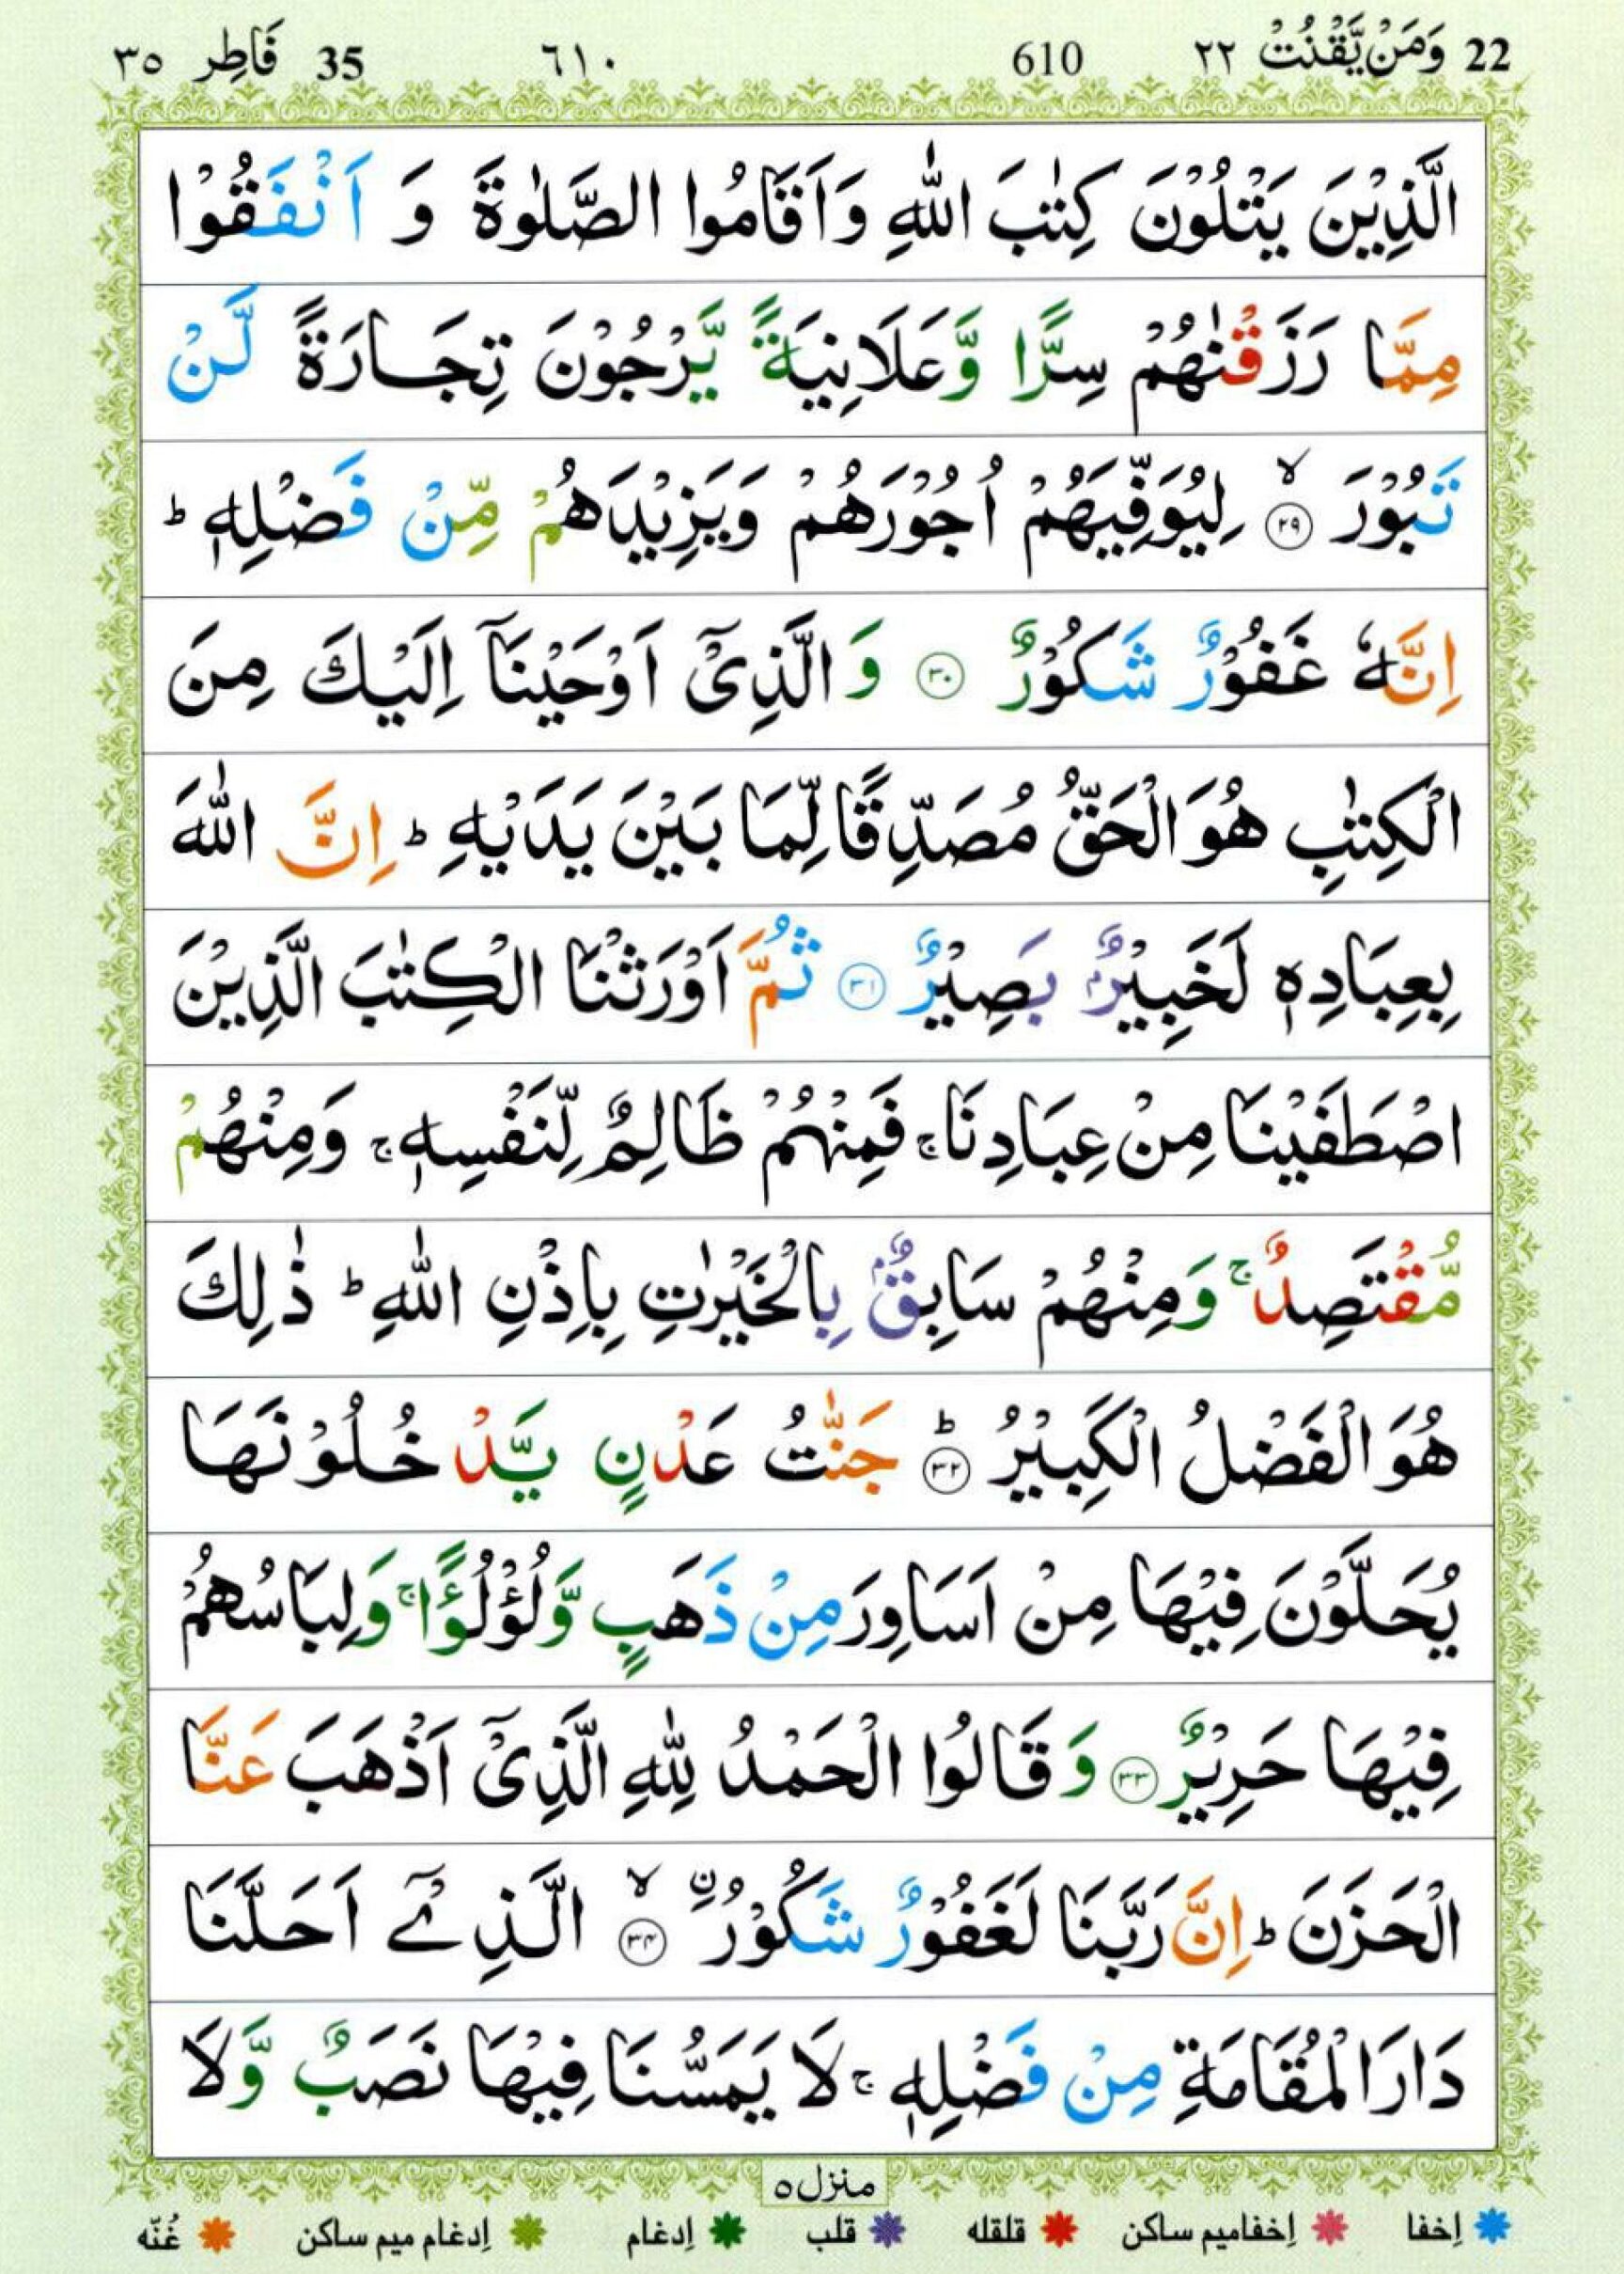 22 وَمَنْ يَّقْنُتْ ٢٢ 610 ٦١٠ 35 فَاطِر ٣٥
الَّذِيْنَ يَتْلُوْنَ كِتٰبَ اللّٰهِ وَاَقَامُوا الصَّلٰوةَ وَ اَنْفَقُوْا
مِمَّا رَزَقْنٰهُمْ سِرًّا وَّعَلَانِيَةً يَّرْجُوْنَ تِجَارَةً لَّنْ
تَبُوْرَ ۙ﴿۲۹﴾ لِيُوَفِّيَهُمْ اُجُوْرَهُمْ وَيَزِيْدَهُمْ مِّنْ فَضْلِهٖ ؕ
اِنَّهٗ غَفُوْرٌ شَكُوْرٌ ﴿۳۰﴾ وَ الَّذِىْۤ اَوْحَيْنَاۤ اِلَيْكَ مِنَ
الْكِتٰبِ هُوَ الْحَقُّ مُصَدِّقًا لِّمَا بَيْنَ يَدَيْهِ ؕ اِنَّ اللّٰهَ
بِعِبَادِهٖ لَخَبِيْرٌۢ بَصِيْرٌ ﴿۳۱﴾ ثُمَّ اَوْرَثْنَا الْكِتٰبَ الَّذِيْنَ
اصْطَفَيْنَا مِنْ عِبَادِنَا ۚ فَمِنْهُمْ ظَالِمٌ لِّنَفْسِهٖ ۚ وَمِنْهُمْ
مُّقْتَصِدٌ ۚ وَمِنْهُمْ سَابِقٌۢ بِالْخَيْرٰتِ بِاِذْنِ اللّٰهِ ؕ ذٰلِكَ
هُوَ الْفَضْلُ الْكَبِيْرُ ؕ﴿۳۲﴾ جَنّٰتُ عَدْنٍ يَّدْخُلُوْنَهَا
يُحَلَّوْنَ فِيْهَا مِنْ اَسَاوِرَ مِنْ ذَهَبٍ وَّلُؤْلُؤًا ۚ وَلِبَاسُهُمْ
فِيْهَا حَرِيْرٌ ﴿۳۳﴾ وَ قَالُوا الْحَمْدُ لِلّٰهِ الَّذِىْۤ اَذْهَبَ عَنَّا
الْحَزَنَ ؕ اِنَّ رَبَّنَا لَغَفُوْرٌ شَكُوْرُ ۨ ۙ﴿۳۴﴾ الَّذِىْۤ اَحَلَّنَا
دَارَ الْمُقَامَةِ مِنْ فَضْلِهٖ ۚ لَا يَمَسُّنَا فِيْهَا نَصَبٌ وَّلَا
منزل ٥
اِخفا اِخفامیم ساکن قلقله قلب اِدغام اِدغام میم ساکن غُنّه